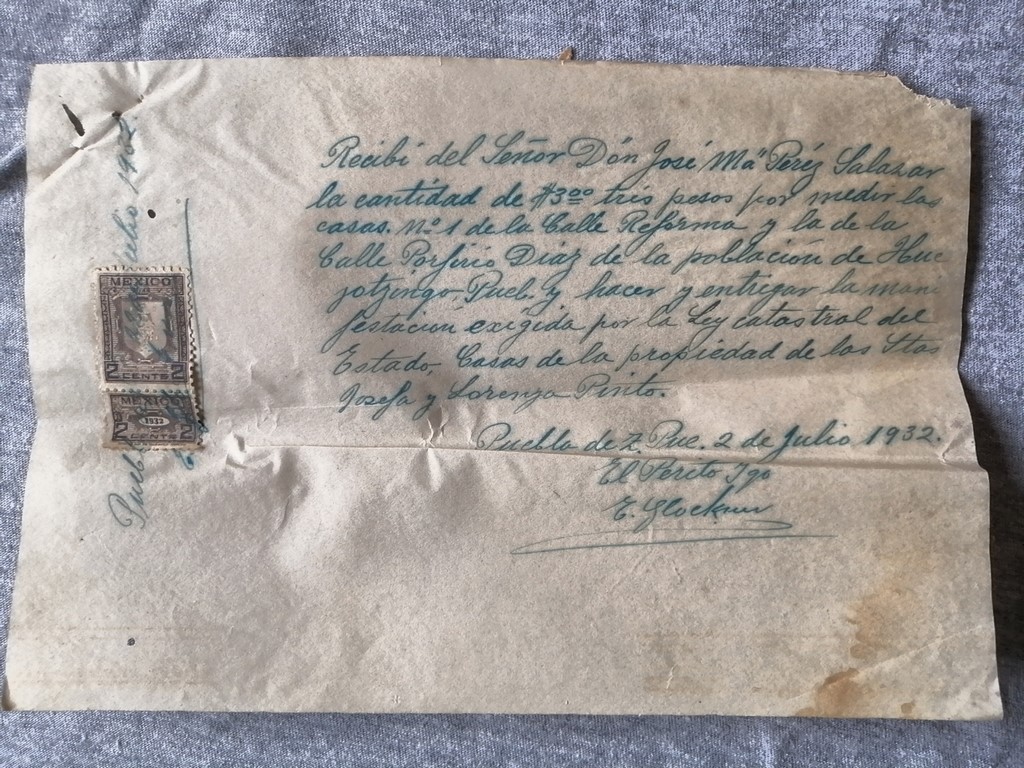 Recibí del Señor Dón José Mª Peréz Salazar
la cantidad de $3.00 trés pesos por medir las
casas. Nº 1 de la Calle Reforma y la de la
Calle Porfirio Diaz de la población de Hue
jotzingo, Pueb. y hacer y entregar la mani
festación exigida por la Ley catastral del
Estado, Casas de la propiedad de las Stas
Josefa y Lorenza Pinto.
Puebla de Z. Pue. 2 de Julio 1932.
El Perito Ygo
E. Glockner
MEXICO
2 CENTS 2
MEXICO
1932
2 CENTS 2
Pueb
Julio 1932.